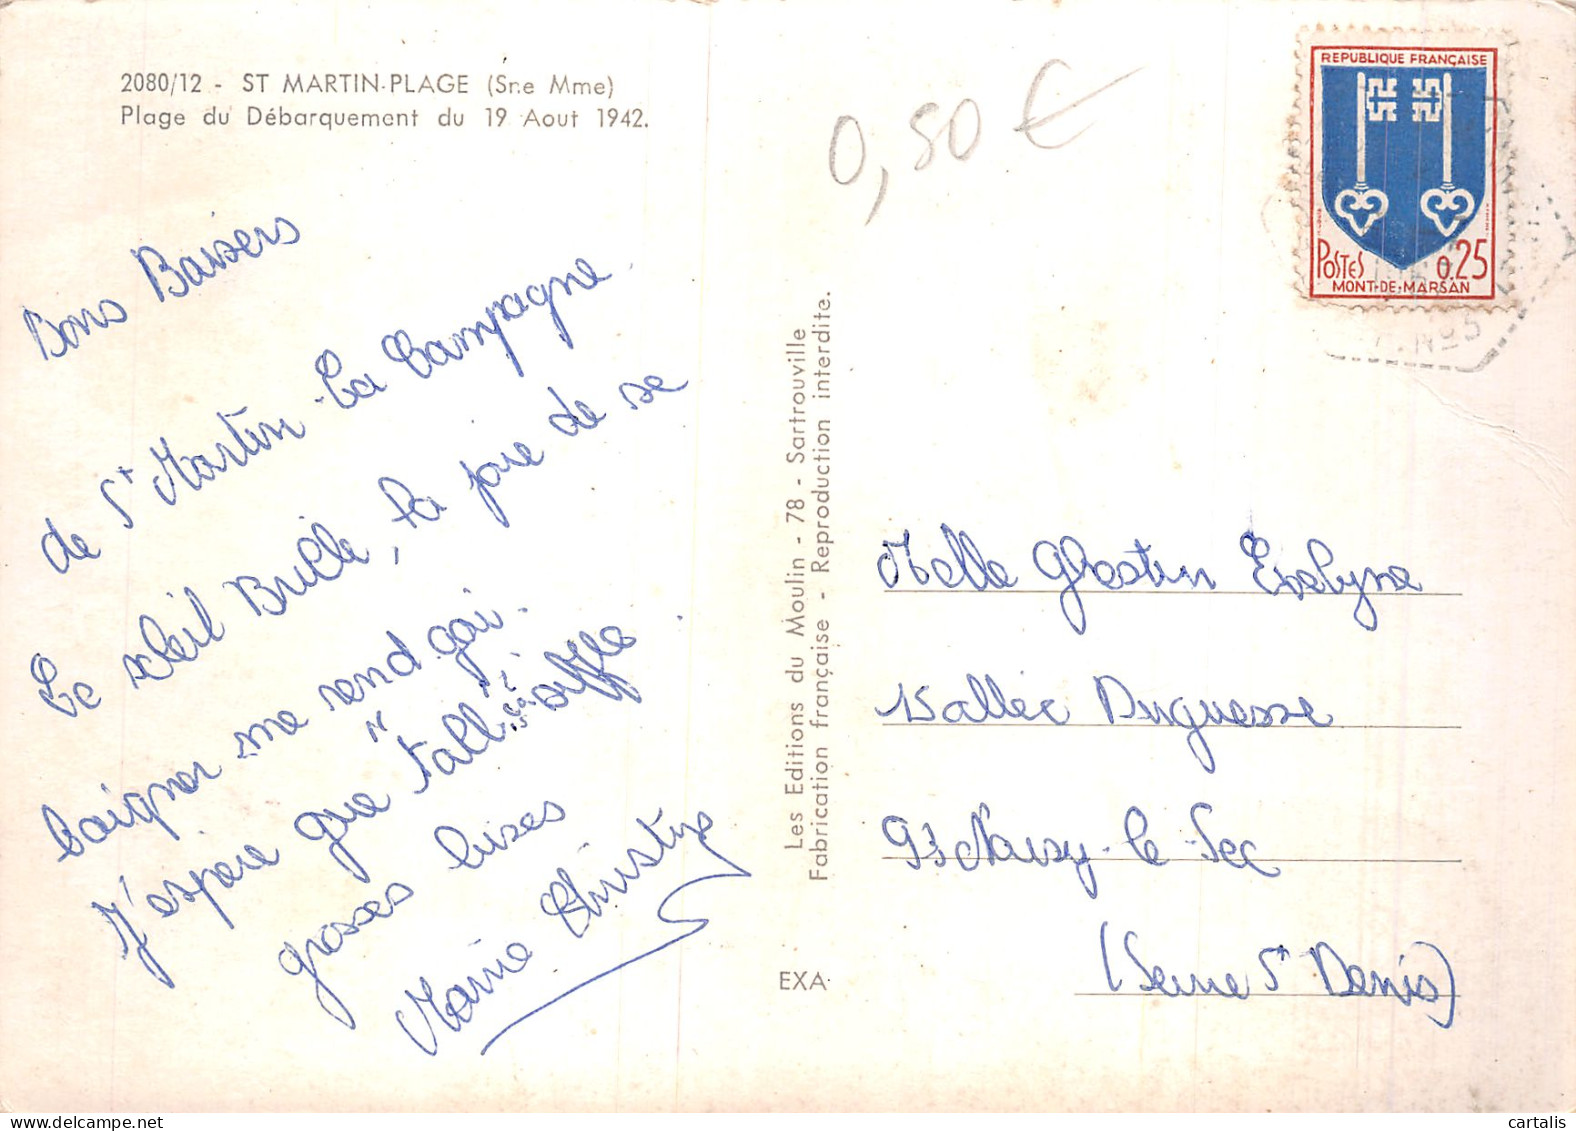 2080/12 - ST MARTIN-PLAGE (Sne Mme)
Plage du Débarquement du 19 Aout 1942.
0,50 €
REPUBLIQUE FRANÇAISE
POSTES 0.25
MONT-DE-MARSAN
No 3
Bons Baisers
de St Martin-La Campagne.
Le soleil Brille, la joie de se
baigner me rend gai.
J'espère que "ça" souffle.
grosses bises
Marie Christine
Les Editions du Moulin - 78 - Sartrouville
Fabrication française - Reproduction interdite.
EXA
Melle Ghestin Evelyne
15 allée Duguesse
93 Noisy-le-Sec
(Seine St Denis)
cartalis